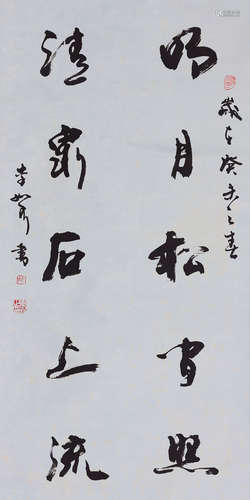 明月松间照
岁在癸未之春
清泉石上流
李如
书